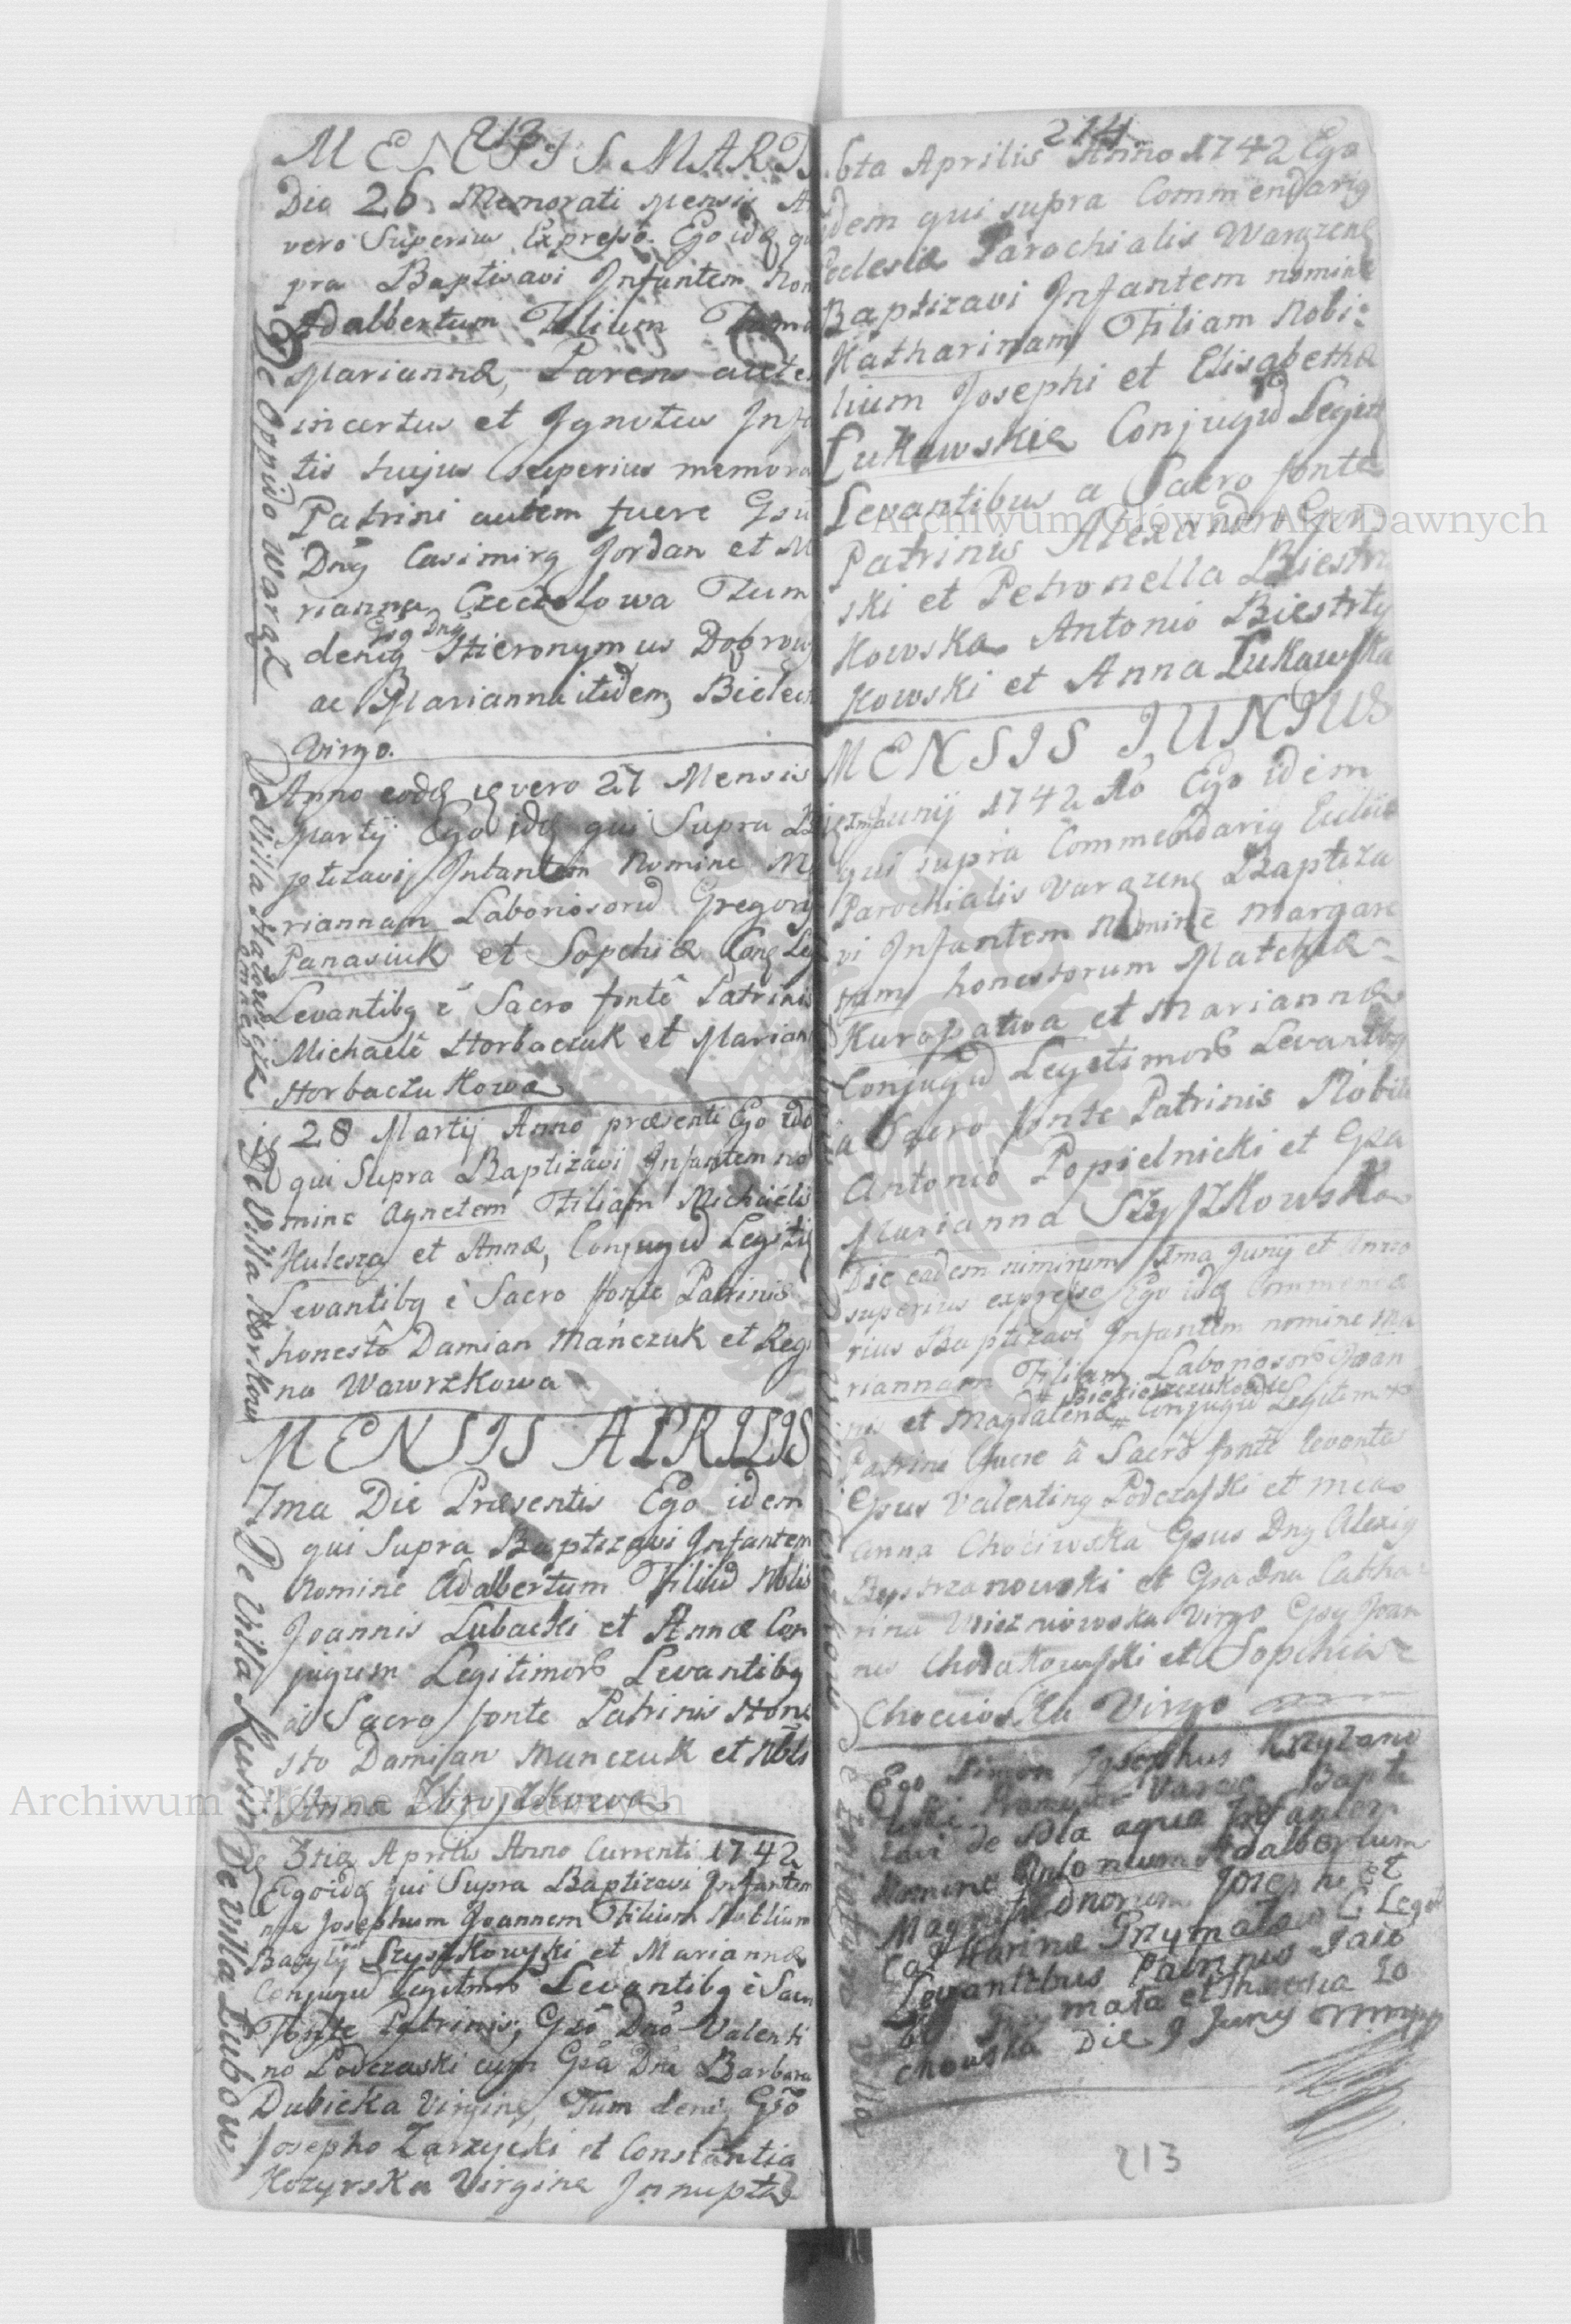 213
MENSIS MARTI
Die 26 Memorati Mensis A
vero Superius Expresso. Ego idē qu
pra Baptisavi Infantem Nom
Adalbertum Filium
Mariannæ, Parens aute
incertus et Ignotus Infa
tis hujus superius memora
Patrini autem fuere Gsu
Dnȝ Casimirȝ Jordan et M
rianna Czeczelowa Tum
Gsȝ Dnȝ
deniȝ Hieronymus Dobrows
ac Marianna itidem Bieleck
Virgo.
De Oppido Waręż
Anno eodē ię vero 27 Mensis
Martij Ego idē qui Supra Ba
ptizavi Infantem Nomine Ma
riannam Laboriosorū Gregorij
Panasiuk et Sophiæ Conȝ Leg
Levantibȝ é Sacro fonte Patrinis
Michaele Horbaczuk et Marian
Horbaczukowa
De Villa
28 Martij Anno præsenti Ego idē
qui Supra Baptizavi Infantem no
mine Agnetem Filiam Michaelis
Hulesza et Annæ, Conjugū Legiti
Levantibȝ é Sacro fonte Patrinis
honesto Damian Mańczuk et Regi
na Wawrzkowa
De Villa
MENSIS APRILIS
1ma Die Præsentis Ego idem
qui Supra Baptizavi Infantem
Nomine Adalbertum Filiū Nblis
Joannis Lubacki et Annæ Con
jugum Legitimorȝ Levantibȝ
á Sacro fonte Patrinis Hone
sto Damian Manczuk et Nbls
Anna
De Villa
3tia Aprilis Anno Currenti 1742
Ego idē qui Supra Baptizavi Infantem
nne Josephum Joannem Filium Nobilium
Bazylij Szyszkowski et Mariannæ
Conjugū Legitmorȝ Levantibȝ é Sacro
Fonte Patrinis, Gsō Dnō Valenti
no Podczaski cum Gsa Dna Barbara
Dubicka Virgine, Tum deniȝ Gsō
Josepho Zarzycki et Constantia
Kozyrska Virgine Innupta
De Villa Łubow
214
6ta Aprilis Anno 1742 Ego
idem qui supra Commendariȝ
Ecclesiæ Parochialis Waręzenȝ
Baptizavi Infantem nomine
Katharinam Filiam Nobi-
lium Josephi et Elisabethæ
Łukawskie Conjugū Legit
Levantibus a Sacro fonte
Patrinis
ski et Petronella Biestrz
kowska Antonio Biestrzy
kowski et Anna Łukawska
MENSIS JUNIUS
1ma Junij 1742 Aō Ego idem
qui supra Commendariȝ Eccliæ
Parochialis Varęzenȝ Baptiza
vi Infantem Nomine Margare
tam honestorum Mathiæ
Kuropatwa et Mariannæ
Conjugū Legitimorȝ Levantibȝ
a Sacro fonte Patrinis Nobili
Antonio Popielnicki et Gsa
Marianna Szyszkowska
Die eadem nimirum 1ma Junij et Anno
superius expresso Ego idē Commenda
rius Baptizavi Infantem nomine Ma
riannam Filiam Laboriosorȝ Joan
nis et Magdalenæ # Conjugū Legitimorȝ
Patrini fuere á Sacro fonte levantes
Gsus Valentinȝ Podczaski et
Anna Chociwska Gsus Dnȝ Alexiȝ
Bystrzanowski et Gsa Dna Catha
rina Virgo Gsȝ Joan
nes Chodakowski et Sophia
Virgo
Ego Simon Josephus Krzyzano
wski Varez Bapti
zavi de sola aqua Infantem
Nomine Antonium Adalbertum
Magnif Dnorum Josephi et
Catharinæ Przymałow C Legit
Levantibus Patrinis Jaco
bo Przymała et Thecla Lo
chowska Die 9 Junij
213
Archiwum Główne Akt Dawnych
Archiwum Główne Akt Dawnych